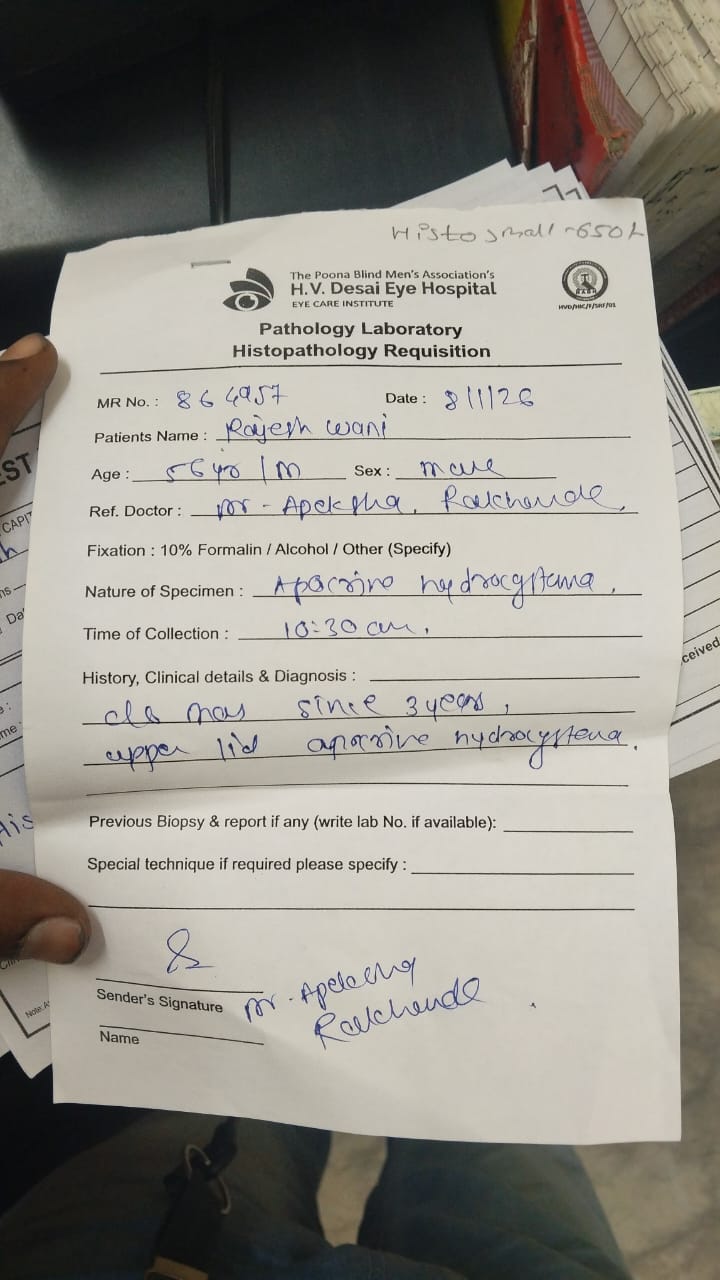 Histo small - 650/-
The Poona Blind Men's Association's
H.V. Desai Eye Hospital
EYE CARE INSTITUTE
HVD/HIC/F/SRF/01
Pathology Laboratory
Histopathology Requisition
MR No. : 864957 Date : 8/1/26
Patients Name : Rajesh Wani
Age : 56 yo / M Sex : male
Ref. Doctor : Dr - Apeksha. Rakhunde.
Fixation : 10% Formalin / Alcohol / Other (Specify)
Nature of Specimen : Apocrine hydrocystama.
Time of Collection : 10:30 am.
History, Clinical details & Diagnosis :
since 3 years,
upper lid apocrine hydrocystema.
Previous Biopsy & report if any (write lab No. if available):
Special technique if required please specify :
Sender's Signature
Dr - Apeksha
Name